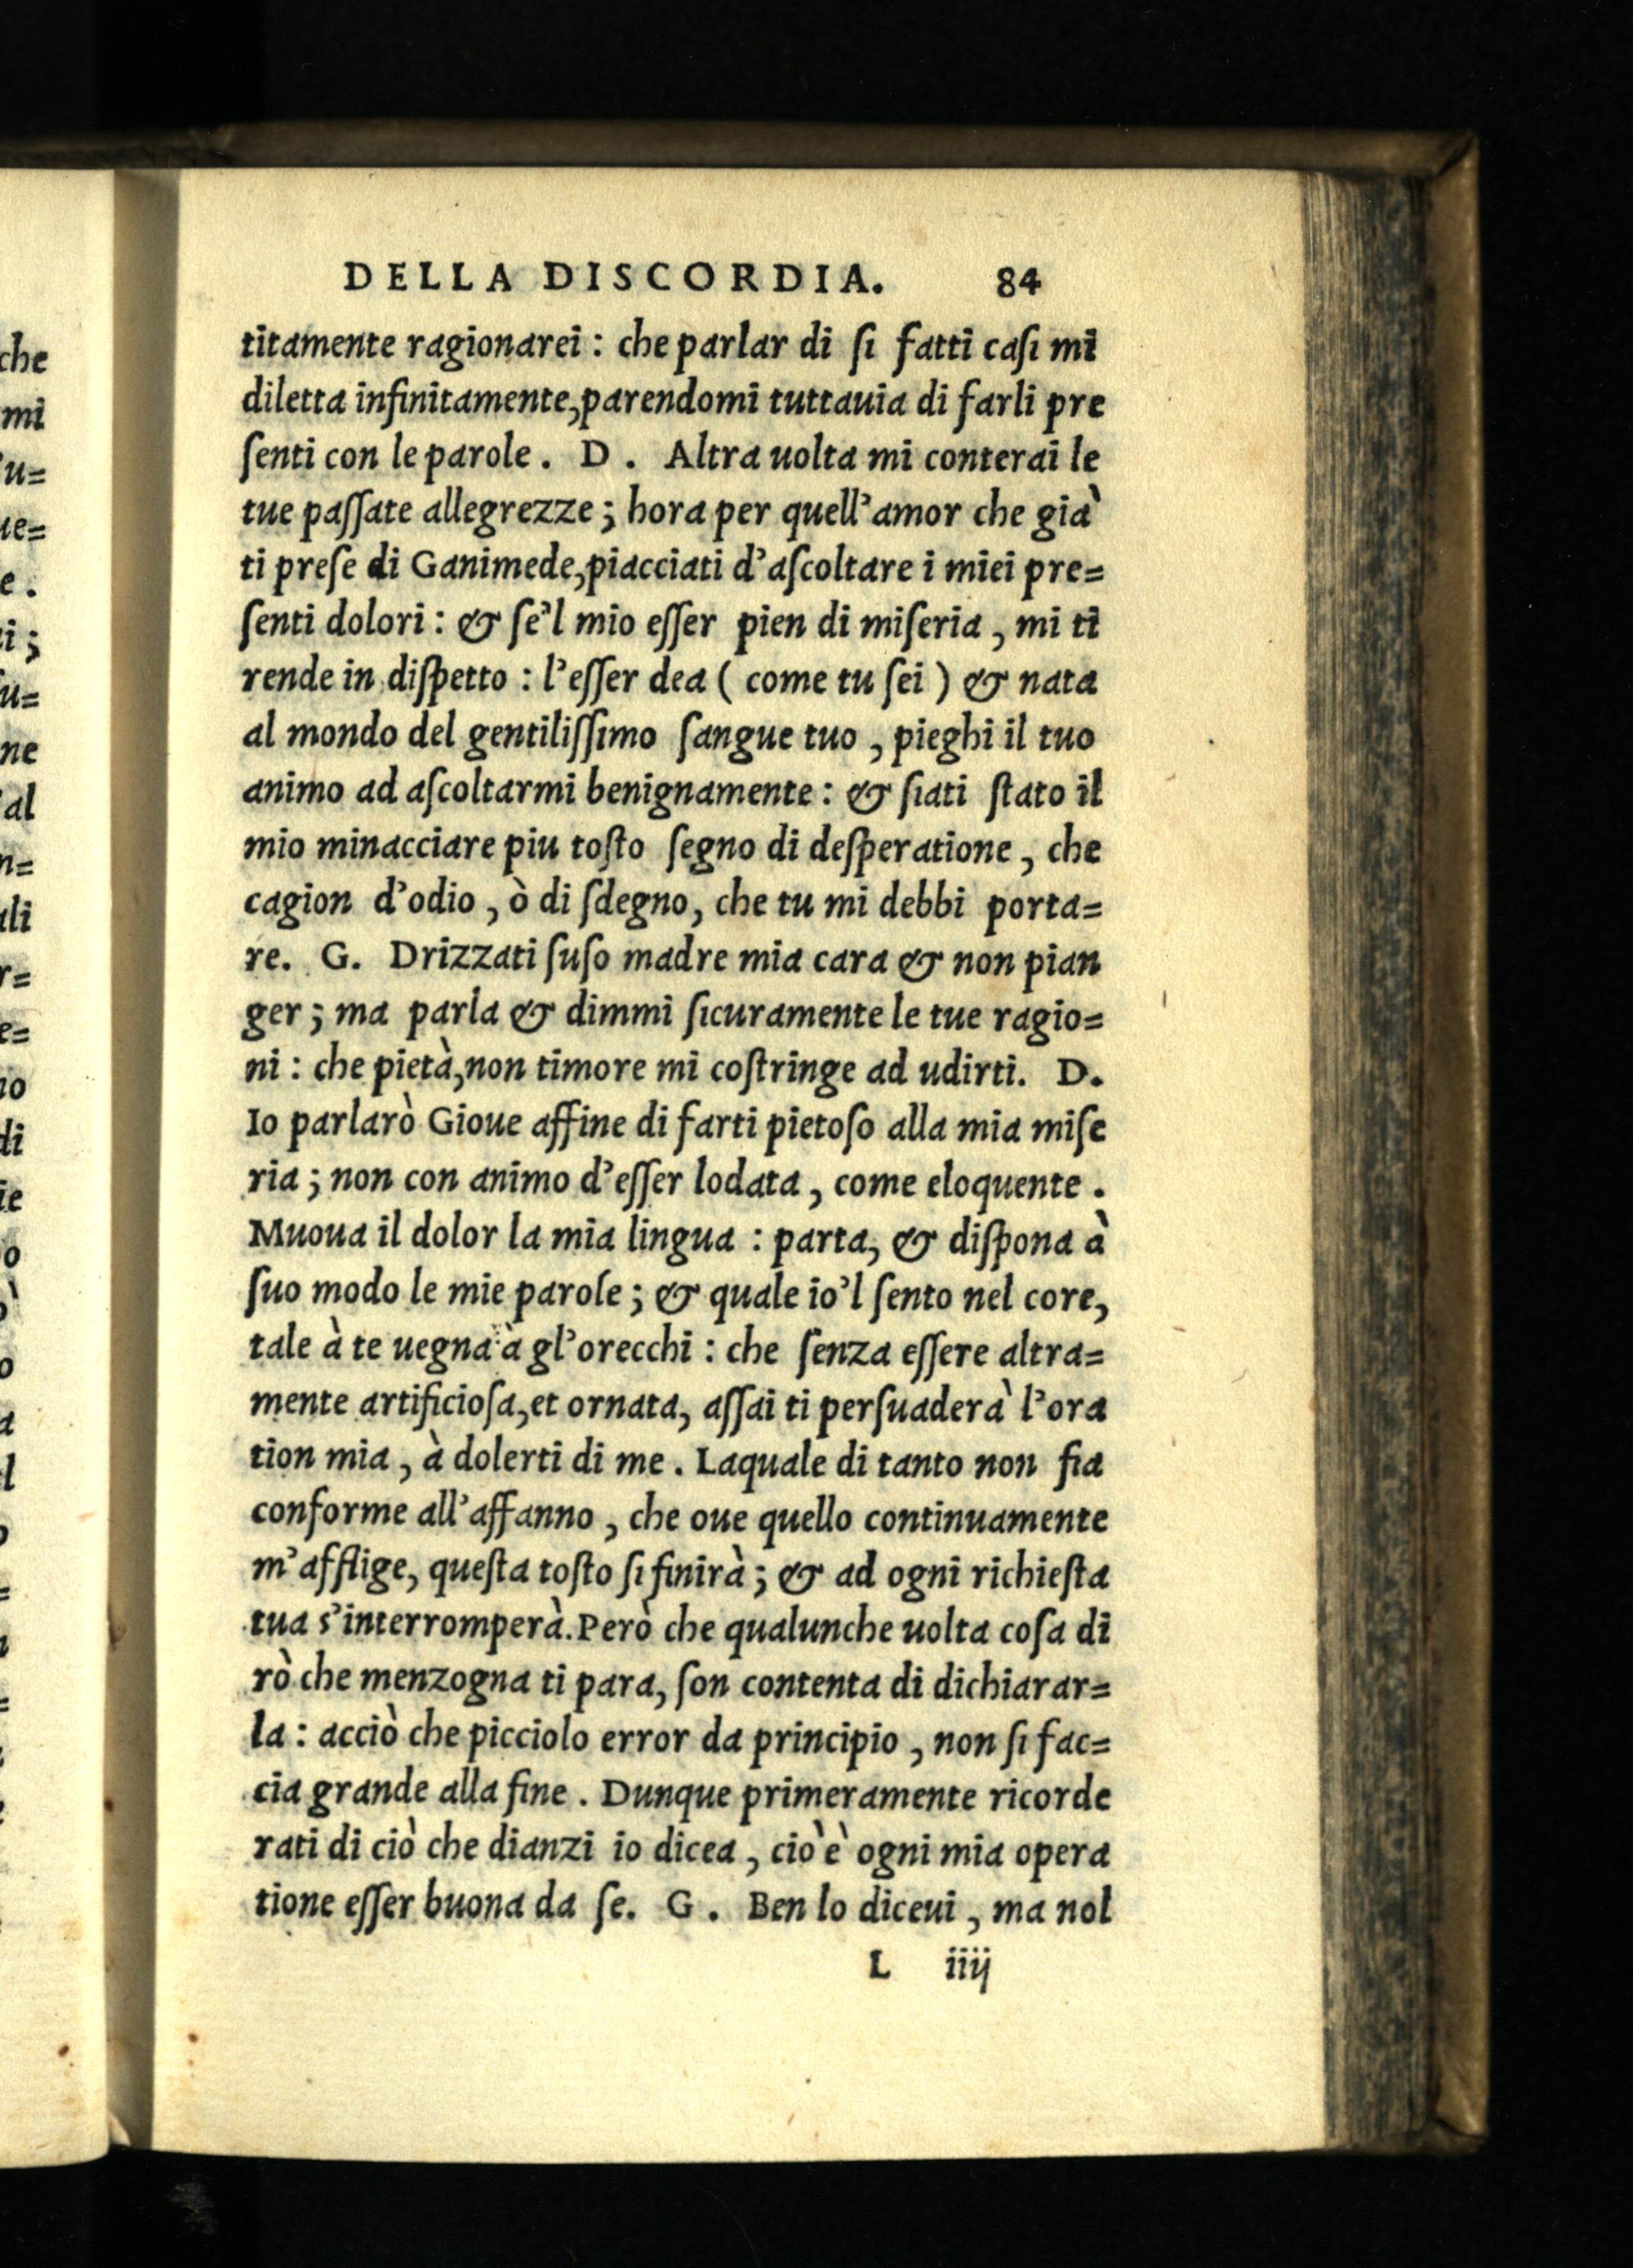 DELLA DISCORDIA. 84
titamente ragionarei : che parlar di ſi fatti caſi mi
diletta infinitamente,parendomi tuttauia di farli pre
ſenti con le parole . D . Altra uolta mi conterai le
tue paſſate allegrezze ; hora per quell'amor che già
ti preſe di Ganimede,piacciati d'aſcoltare i miei pre=
ſenti dolori : & ſe'l mio eſſer pien di miſeria , mi ti
rende in diſpetto : l'eſſer dea ( come tu ſei ) & nata
al mondo del gentiliſſimo ſangue tuo , pieghi il tuo
animo ad aſcoltarmi benignamente : & ſiati ſtato il
mio minacciare piu toſto ſegno di deſperatione , che
cagion d'odio , ò di ſdegno, che tu mi debbi porta=
re. G. Drizzati ſuſo madre mia cara & non pian
ger ; ma parla & dimmi ſicuramente le tue ragio=
ni : che pietà,non timore mi coſtringe ad udirti. D.
Io parlarò Gioue affine di farti pietoſo alla mia miſe
ria ; non con animo d'eſſer lodata , come eloquente .
Muoua il dolor la mia lingua : parta, & diſpona à
ſuo modo le mie parole ; & quale io'l ſento nel core,
tale à te uegna à gl'orecchi : che ſenza eſſere altra=
mente artificioſa,et ornata, aſſai ti perſuaderà l'ora
tion mia , à dolerti di me . Laquale di tanto non fia
conforme all'affanno , che oue quello continuamente
m'afflige, queſta toſto ſi finirà ; & ad ogni richieſta
tua s'interromperà.Però che qualunche uolta coſa di
rò che menzogna ti para, ſon contenta di dichiarar=
la : acciò che picciolo error da principio , non ſi fac=
cia grande alla fine . Dunque primeramente ricorde
rati di ciò che dianzi io dicea , ciò è ogni mia opera
tione eſſer buona da ſe. G . Ben lo diceui , ma nol
L iiij